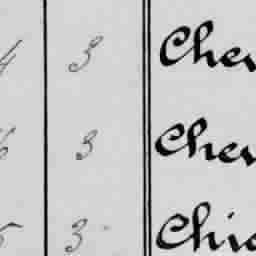 4 3 Chev
6 3 Chev
5 3 Chic